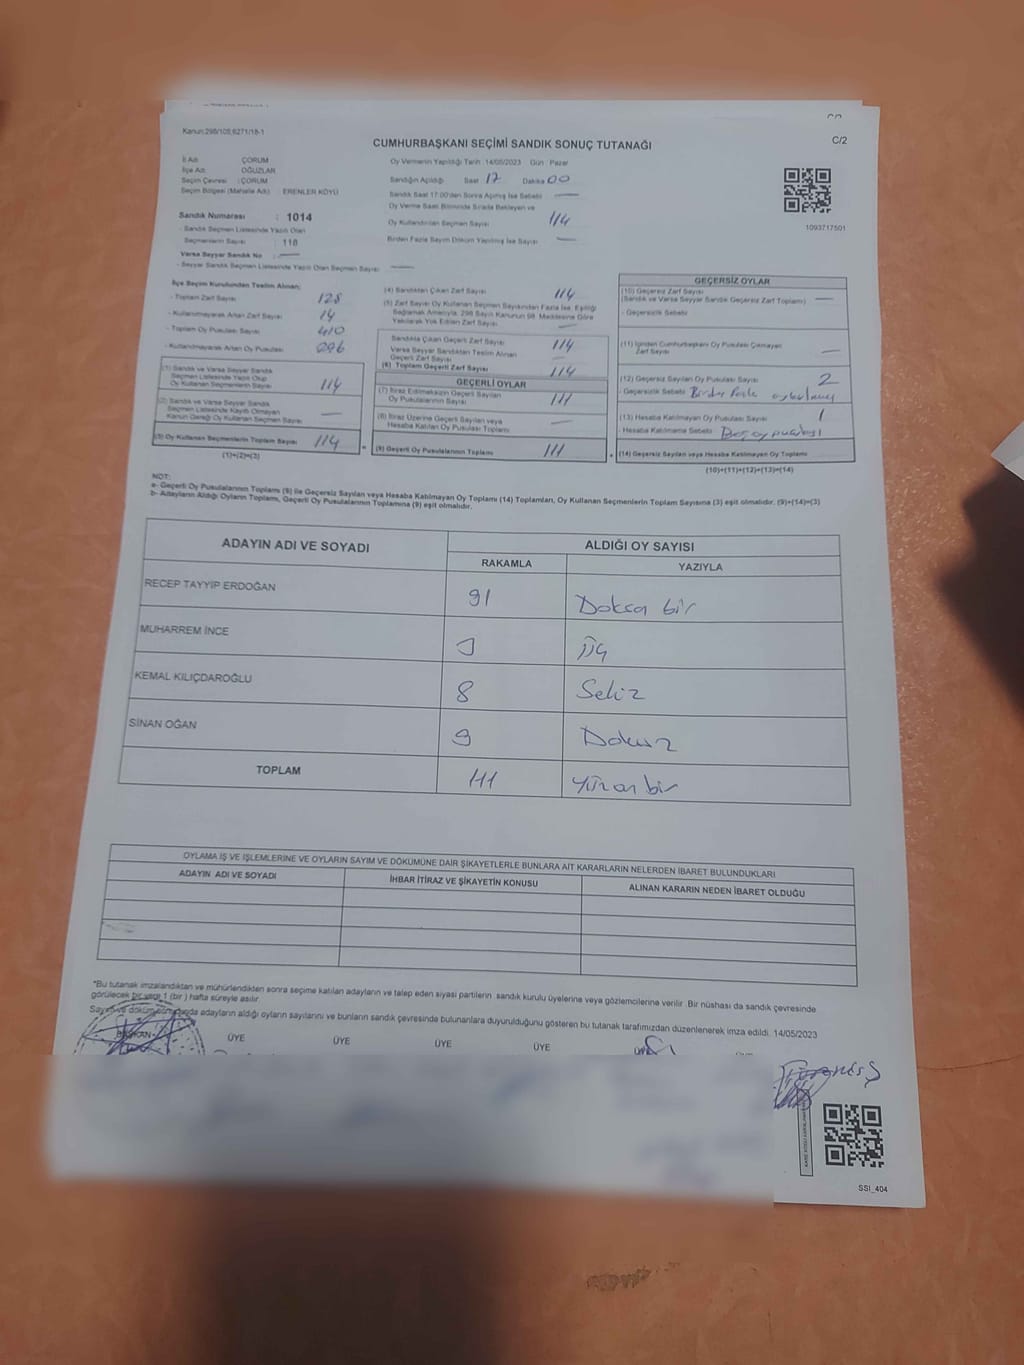 Kanun:298/105;6271/18-1
C/2
CUMHURBAŞKANI SEÇİMİ SANDIK SONUÇ TUTANAĞI
İl Adı : ÇORUM
İlçe Adı : OĞUZLAR
Seçim Çevresi : ÇORUM
Seçim Bölgesi (Mahalle Adı) : ERENLER KÖYÜ
Sandık Numarası : 1014
- Sandık Seçmen Listesinde Yazılı Olan
Seçmenlerin Sayısı : 118
Varsa Seyyar Sandık No :
- Seyyar Sandık Seçmen Listesinde Yazılı Olan Seçmen Sayısı :
Oy Vermenin Yapıldığı Tarih :14/05/2023 Gün : Pazar
Sandığın Açıldığı Saat 17 Dakika 00
Sandık Saat 17:00'den Sonra Açılmış İse Sebebi
Oy Verme Saati Bitiminde Sırada Bekleyen ve
Oy Kullandırılan Seçmen Sayısı 114
Birden Fazla Sayım Döküm Yapılmış İse Sayısı
1093717501
İlçe Seçim Kurulundan Teslim Alınan;
- Toplam Zarf Sayısı 128
- Kullanılmayarak Artan Zarf Sayısı 14
- Toplam Oy Pusulası Sayısı 410
- Kullanılmayarak Artan Oy Pusulası 296
(1) Sandık ve Varsa Seyyar Sandık
Seçmen Listesinde Yazılı Olup
Oy Kullanan Seçmenlerin Sayısı 114
(2) Sandık ve Varsa Seyyar Sandık
Seçmen Listesinde Kayıtlı Olmayan
Kanun Gereği Oy Kullanan Seçmen Sayısı
(3) Oy Kullanan Seçmenlerin Toplam Sayısı 114
(1)+(2)=(3)
(4) Sandıktan Çıkan Zarf Sayısı 114
(5) Zarf Sayısı Oy Kullanan Seçmen Sayısından Fazla İse, Eşitliği
Sağlamak Amacıyla, 298 Sayılı Kanunun 98. Maddesine Göre
Yakılarak Yok Edilen Zarf Sayısı
Sandıkta Çıkan Geçerli Zarf Sayısı 114
Varsa Seyyar Sandıktan Teslim Alınan
Geçerli Zarf Sayısı
(6) Toplam Geçerli Zarf Sayısı 114
GEÇERLİ OYLAR
(7) İtiraz Edilmeksizin Geçerli Sayılan
Oy Pusulalarının Sayısı 111
(8) İtiraz Üzerine Geçerli Sayılan veya
Hesaba Katılan Oy Pusulası Toplamı
(9) Geçerli Oy Pusulalarının Toplamı 111
GEÇERSİZ OYLAR
(10) Geçersiz Zarf Sayısı
(Sandık ve Varsa Seyyar Sandık Geçersiz Zarf Toplamı)
- Geçersizlik Sebebi
(11) İçinden Cumhurbaşkanı Oy Pusulası Çıkmayan
Zarf Sayısı
(12) Geçersiz Sayılan Oy Pusulası Sayısı 2
- Geçersizlik Sebebi Birden fazla
(13) Hesaba Katılmayan Oy Pusulası Sayısı 1
- Hesaba Katılmama Sebebi Boş oy pusulası
(14) Geçersiz Sayılan veya Hesaba Katılmayan Oy Toplamı
(10)+(11)+(12)+(13)=(14)
NOT:
a- Geçerli Oy Pusulalarının Toplamı (9) ile Geçersiz Sayılan veya Hesaba Katılmayan Oy Toplamı (14) Toplamları, Oy Kullanan Seçmenlerin Toplam Sayısına (3) eşit olmalıdır. (9)+(14)=(3)
b- Adayların Aldığı Oyların Toplamı, Geçerli Oy Pusulalarının Toplamına (9) eşit olmalıdır.
ADAYIN ADI VE SOYADI ALDIĞI OY SAYISI
RAKAMLA YAZIYLA
RECEP TAYYİP ERDOĞAN 91 Doksa bir
MUHARREM İNCE 3 üç
KEMAL KILIÇDAROĞLU 8 Sekiz
SİNAN OĞAN 9 Dokuz
TOPLAM 111 yüzon bir
OYLAMA İŞ VE İŞLEMLERİNE VE OYLARIN SAYIM VE DÖKÜMÜNE DAİR ŞİKAYETLERLE BUNLARA AİT KARARLARIN NELERDEN İBARET BULUNDUKLARI
ADAYIN ADI VE SOYADI İHBAR İTİRAZ VE ŞİKAYETİN KONUSU ALINAN KARARIN NEDEN İBARET OLDUĞU
*Bu tutanak imzalandıktan ve mühürlendikten sonra seçime katılan adayların ve talep eden siyasi partilerin sandık kurulu üyelerine veya gözlemcilerine verilir. Bir nüshası da sandık çevresinde
görülecek bir yere 1 (bir ) hafta süreyle asılır.
Sayım ve döküm sonunda adayların aldığı oyların sayılarını ve bunların sandık çevresinde bulunanlara duyurulduğunu gösteren bu tutanak tarafımızdan düzenlenerek imza edildi. 14/05/2023
BAŞKAN ÜYE ÜYE ÜYE ÜYE
SSI_404